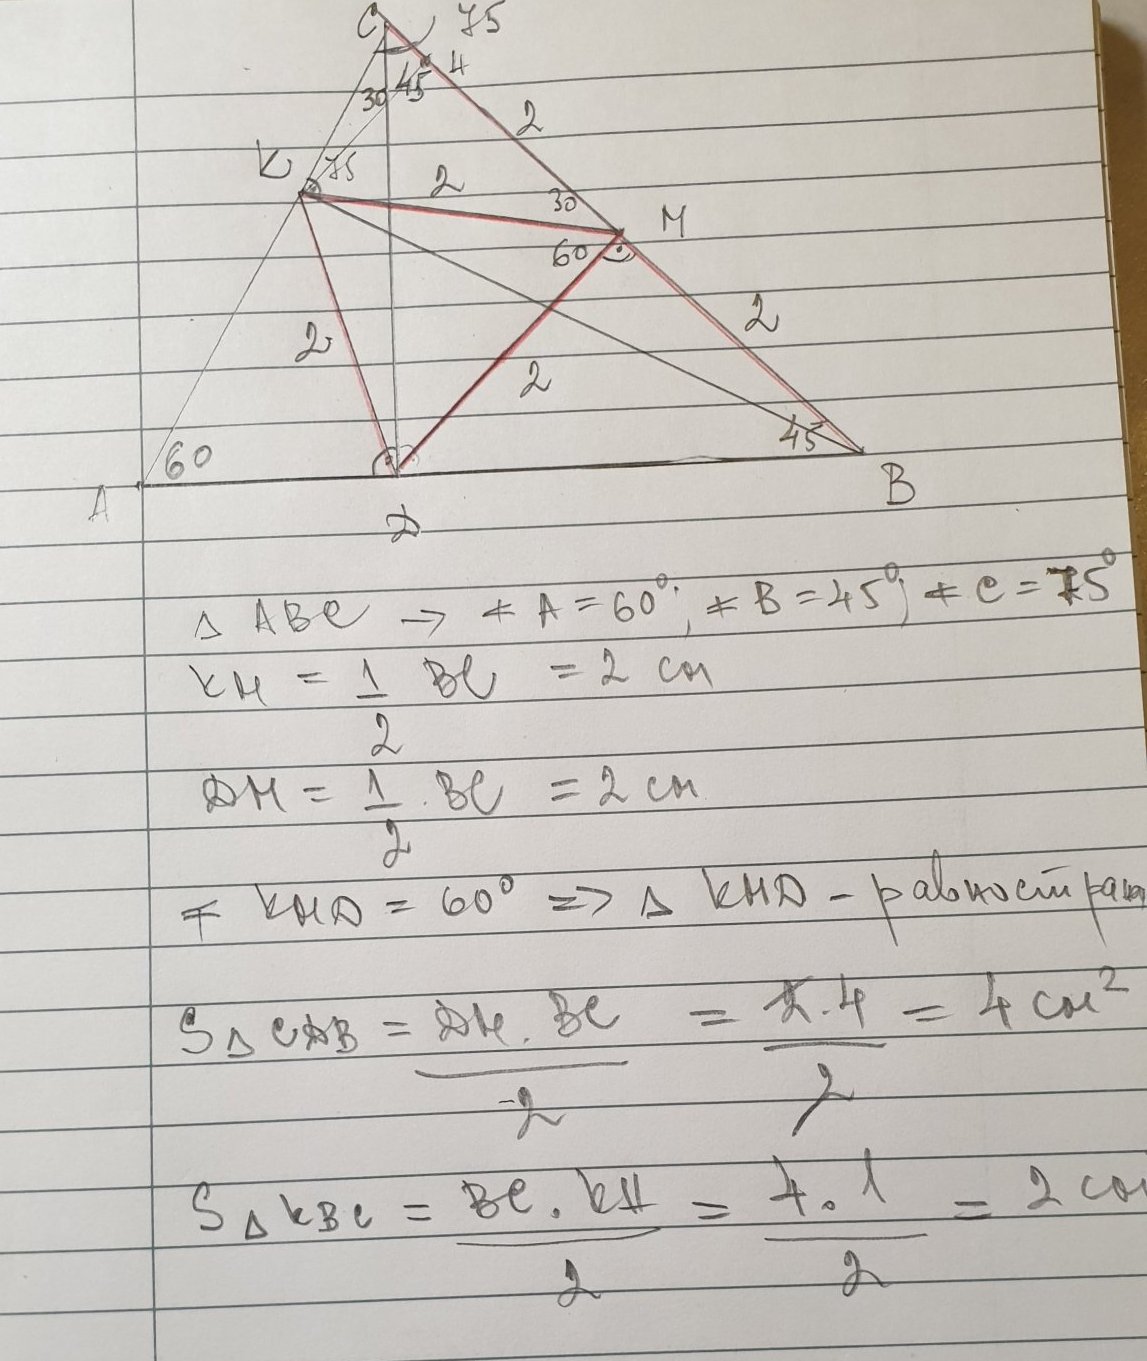 C 75
45 4
30
2
K 75
2
30
M
60
2
2
2
45
60
A
B
D
△ ABC → ∢ A = 60°; ∢ B = 45°; ∢ C = 75°
KM = 1/2 BC = 2 см
DM = 1/2 . BC = 2 см
∢ KMD = 60° => △ KMD - равностран
S△CDB = DM . BC / 2 = 2.4 / 2 = 4 см²
S△KBC = BC . KH / 2 = 4.1 / 2 = 2 см